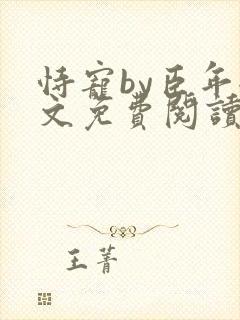 恃寵by臣年
文免費閱讀
王菁